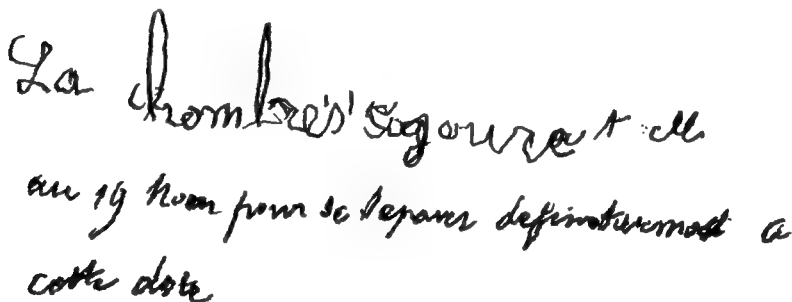 La chambre s'ajournera
au 19 Nov pour se séparer définitivement a
cette date